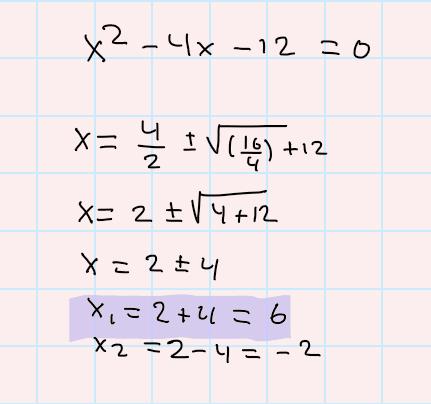 x² - 4x - 12 = 0
x = 4/2 ± √(16/4) + 12
x = 2 ± √4 + 12
x = 2 ± 4
x₁ = 2 + 4 = 6
x₂ = 2 - 4 = -2